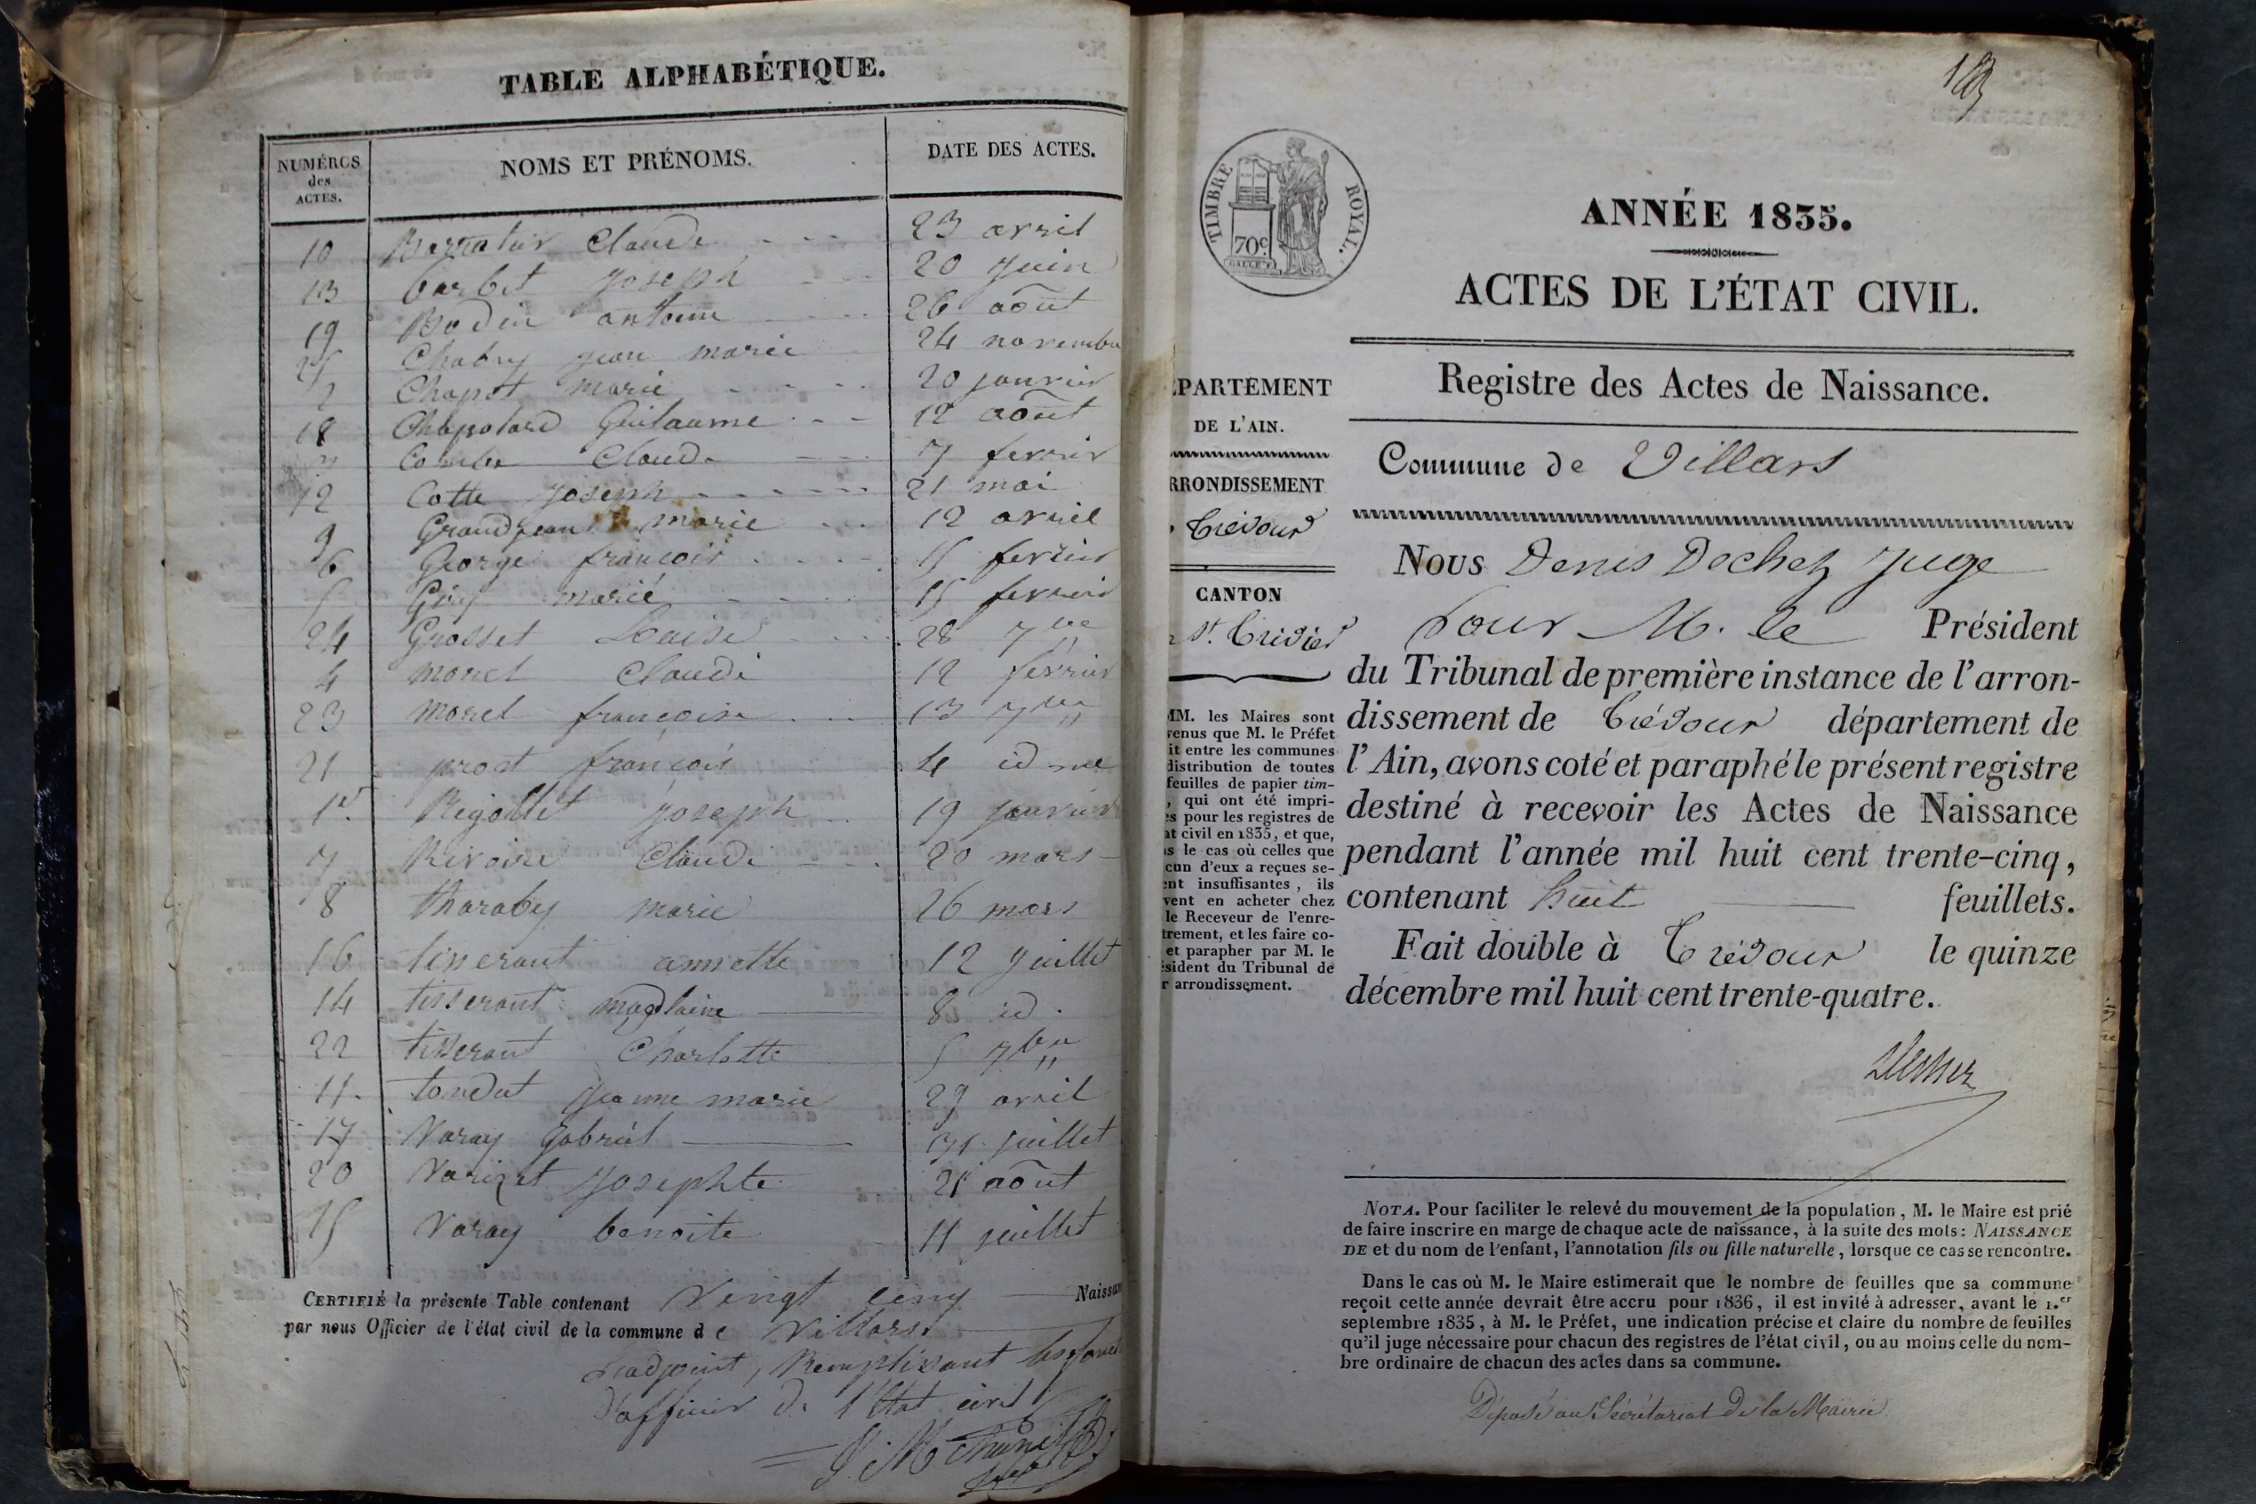 TABLE ALPHABÉTIQUE.
NUMÉROS des ACTES. NOMS ET PRÉNOMS. DATE DES ACTES.
10 Claude 23 avril
13 barbet Joseph 20 Juin
19 Bodin antoine 26 août
25 Chabry jean marie 24 novembre
2 Chapot marie 20 janvier
18 Chapotard Guilaume 12 août
Claude 7 fevrier
12 Cotte Joseph 21 mai
9 Grandjean marie 12 avril
6 George françois 15 fevrier
5 Guy marie 15 fevrier
24 Grosset Louise 28 7bre
4 morel Claude 12 fevrier
23 morel françoise 13 7bre
21 prost françois 4 id
1er Rigollet joseph 19 janvier
7 Rivoire Claude 20 mars
8 tharaby marie 26 mars
16 tisserant annette 12 juillet
14 tisserant magdlaine 8 id.
22 tisserant Charlotte 5 7bre
11. tondut jeanne marie 29 avril
17 Varay gabriel 31 juillet
20 Josephte 21 août
15 Varay benoite 11 juillet
CERTIFIÉ la présente Table contenant Vingt cinq Naissan
par nous Officier de l'état civil de la commune de Villars
L'adjoint, Remplissant les fonct
D'officier De l'état civil
183
TIMBRE ROYAL.
70c
ANNÉE 1835.
ACTES DE L'ÉTAT CIVIL.
Registre des Actes de Naissance.
Commune de Villars
ÉPARTEMENT
DE L'AIN.
RRONDISSEMENT
Trévoux
CANTON
St. Trivier
MM. les Maires sont
venus que M. le Préfet
it entre les communes
distribution de toutes
feuilles de papier tim-
, qui ont été impri-
es pour les registres de
at civil en 1835, et que,
s le cas où celles que
cun d'eux a reçues se-
ent insuffisantes, ils
vent en acheter chez
le Receveur de l'enre-
trement, et les faire co-
et parapher par M. le
ésident du Tribunal de
r arrondissement.
Nous Denis Dechez Juge
Pour M. le Président
du Tribunal de première instance de l'arron-
dissement de Trévoux département de
l'Ain, avons coté et paraphé le présent registre
destiné à recevoir les Actes de Naissance
pendant l'année mil huit cent trente-cinq,
contenant huit feuillets.
Fait double à Trévoux le quinze
décembre mil huit cent trente-quatre.
NOTA. Pour faciliter le relevé du mouvement de la population, M. le Maire est prié
de faire inscrire en marge de chaque acte de naissance, à la suite des mots: NAISSANCE
DE et du nom de l'enfant, l'annotation fils ou fille naturelle, lorsque ce cas se rencontre.
Dans le cas où M. le Maire estimerait que le nombre de feuilles que sa commune
reçoit cette année devrait être accru pour 1836, il est invité à adresser, avant le 1.er
septembre 1835, à M. le Préfet, une indication précise et claire du nombre de feuilles
qu'il juge nécessaire pour chacun des registres de l'état civil, ou au moins celle du nom-
bre ordinaire de chacun des actes dans sa commune.
Déposé au Sécrétariat De la Mairie